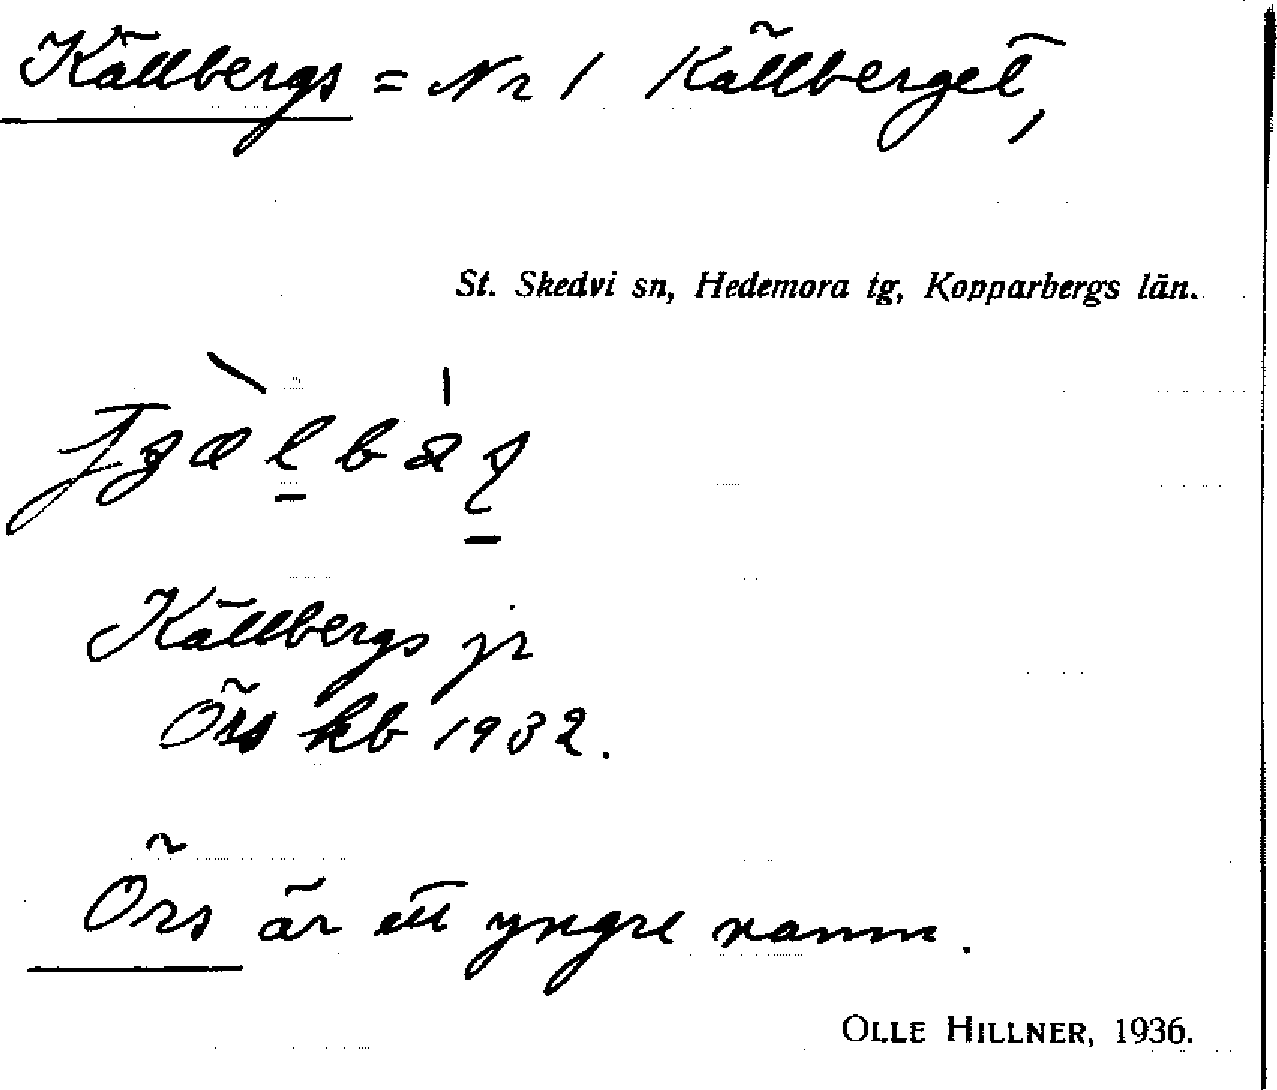 Källbergs = Nr 1 Källberget,
St. Skedvi sn, Hedemora tg, Kopparbergs län.
Källbergs jr
Örs kb 1932.
Örs är ett yngre namn.
OLLE HILLNER, 1936.